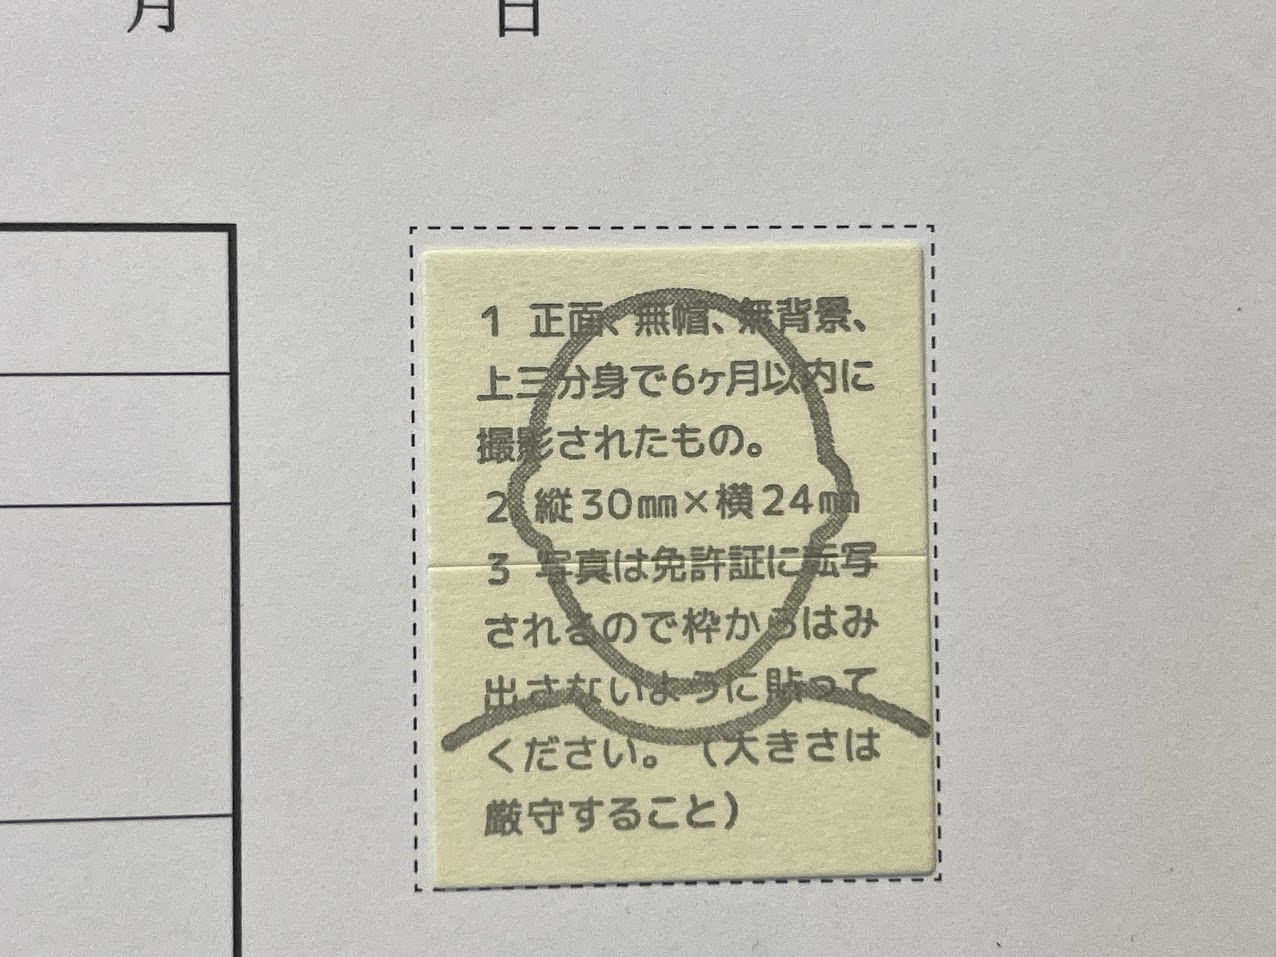 月 日
1 正面、無帽、無背景、
上三分身で6ヶ月以内に
撮影されたもの。
2 縦30㎜×横24㎜
3 写真は免許証に転写
されるので枠からはみ
出さないように貼って
ください。（大きさは
厳守すること）